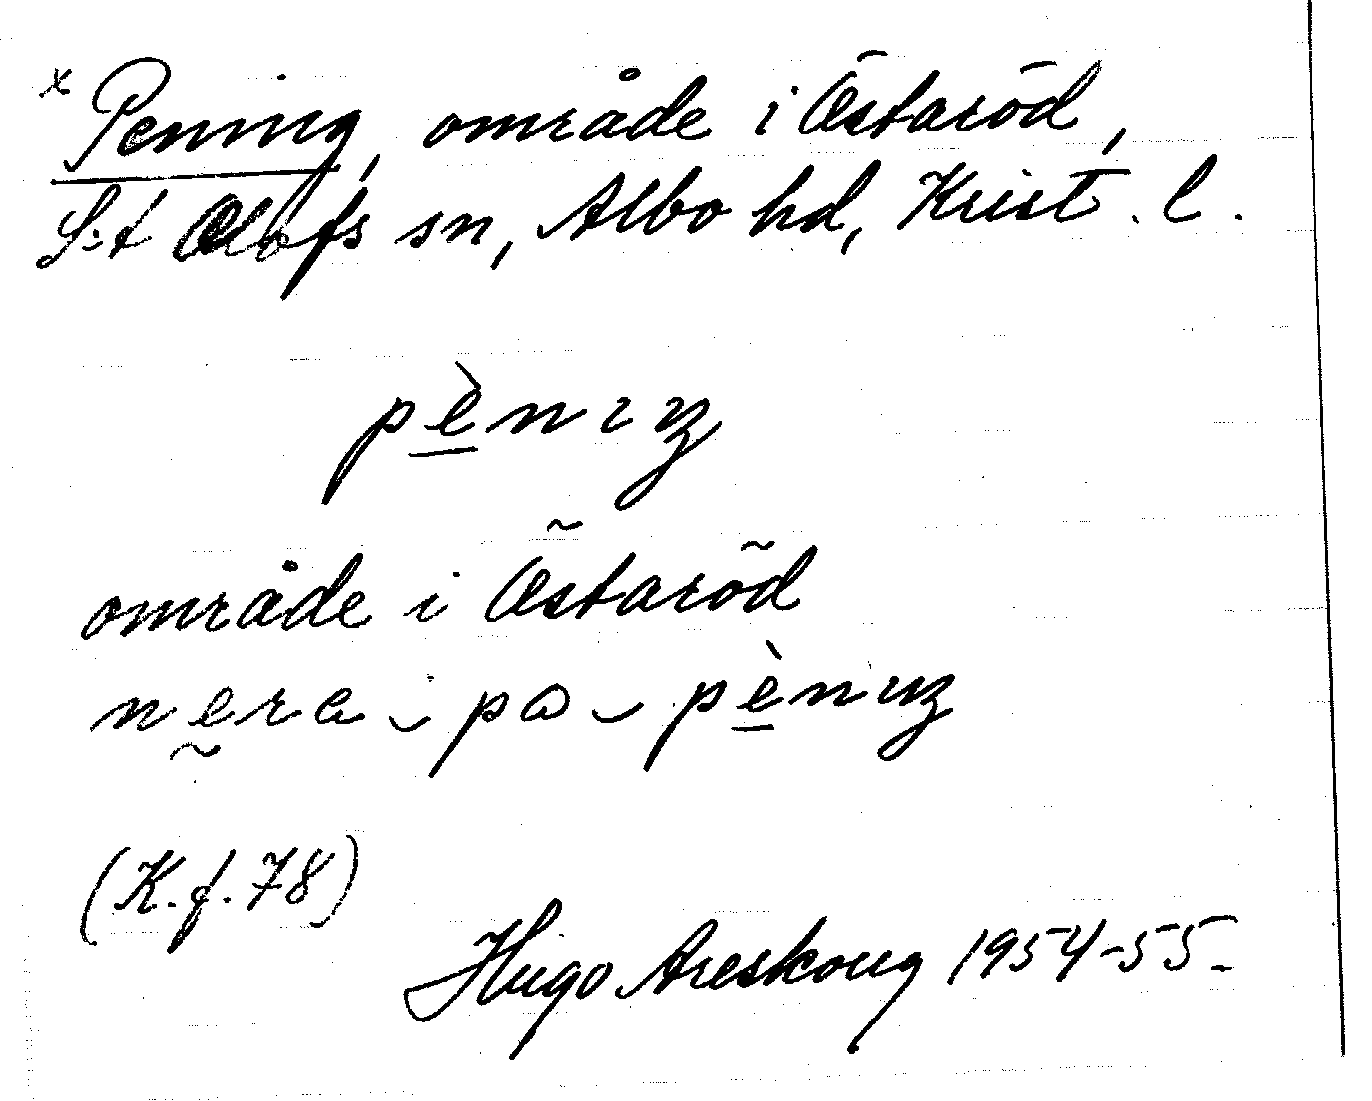 x Penning, område i Östaröd,
S:t Olofs sn, Albo hd, Krist. l.
pènıŋ
område i Östaröd
nera ‿ pa ‿ pènıŋ
(K.f. 78)
Hugo Areskoug 1954-55-